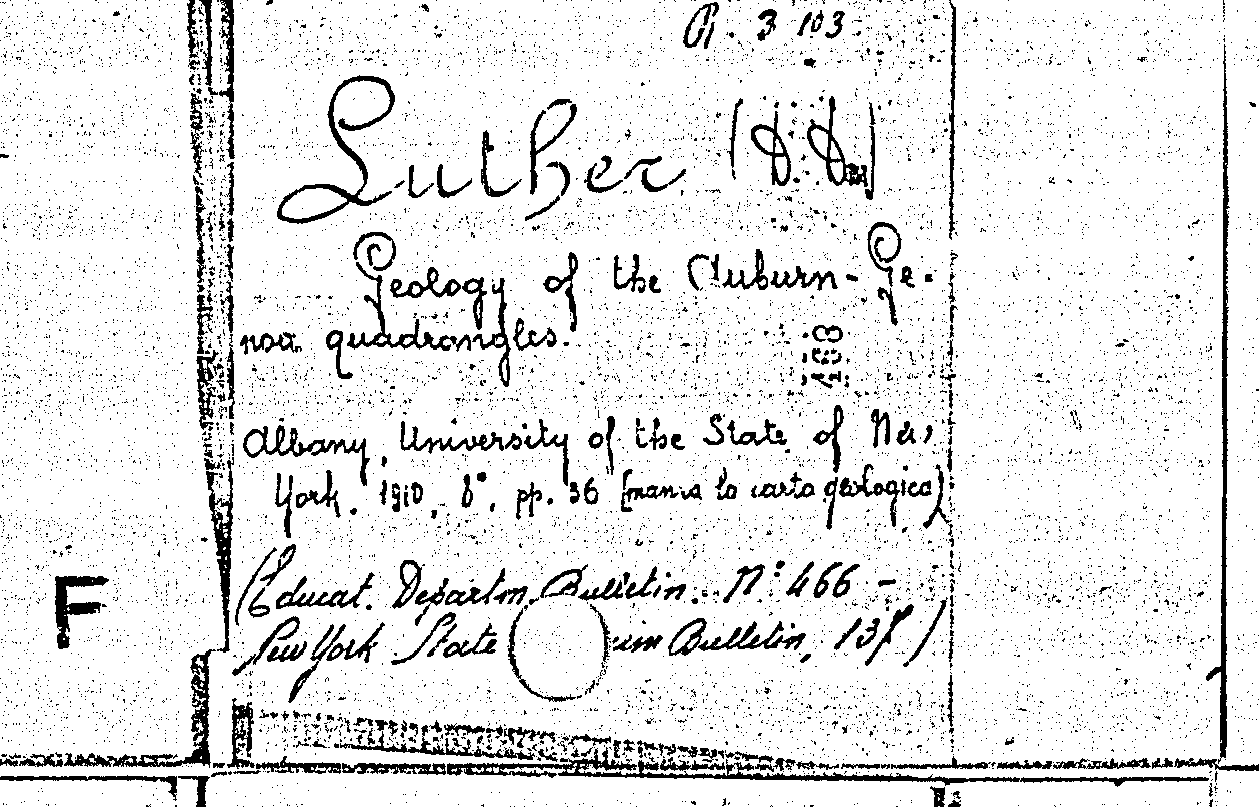 R. 3 103.
Luther (D. D.)
Geology of the Auburn-Ge-
noa quadrangles.
183
Albany, University of the State of New
York. 1910. 8°. pp. 36 (manca la carta geologica)
(Educat. Departm. Bulletin. N.° 466 -
New York State um Bulletin, 137)
F